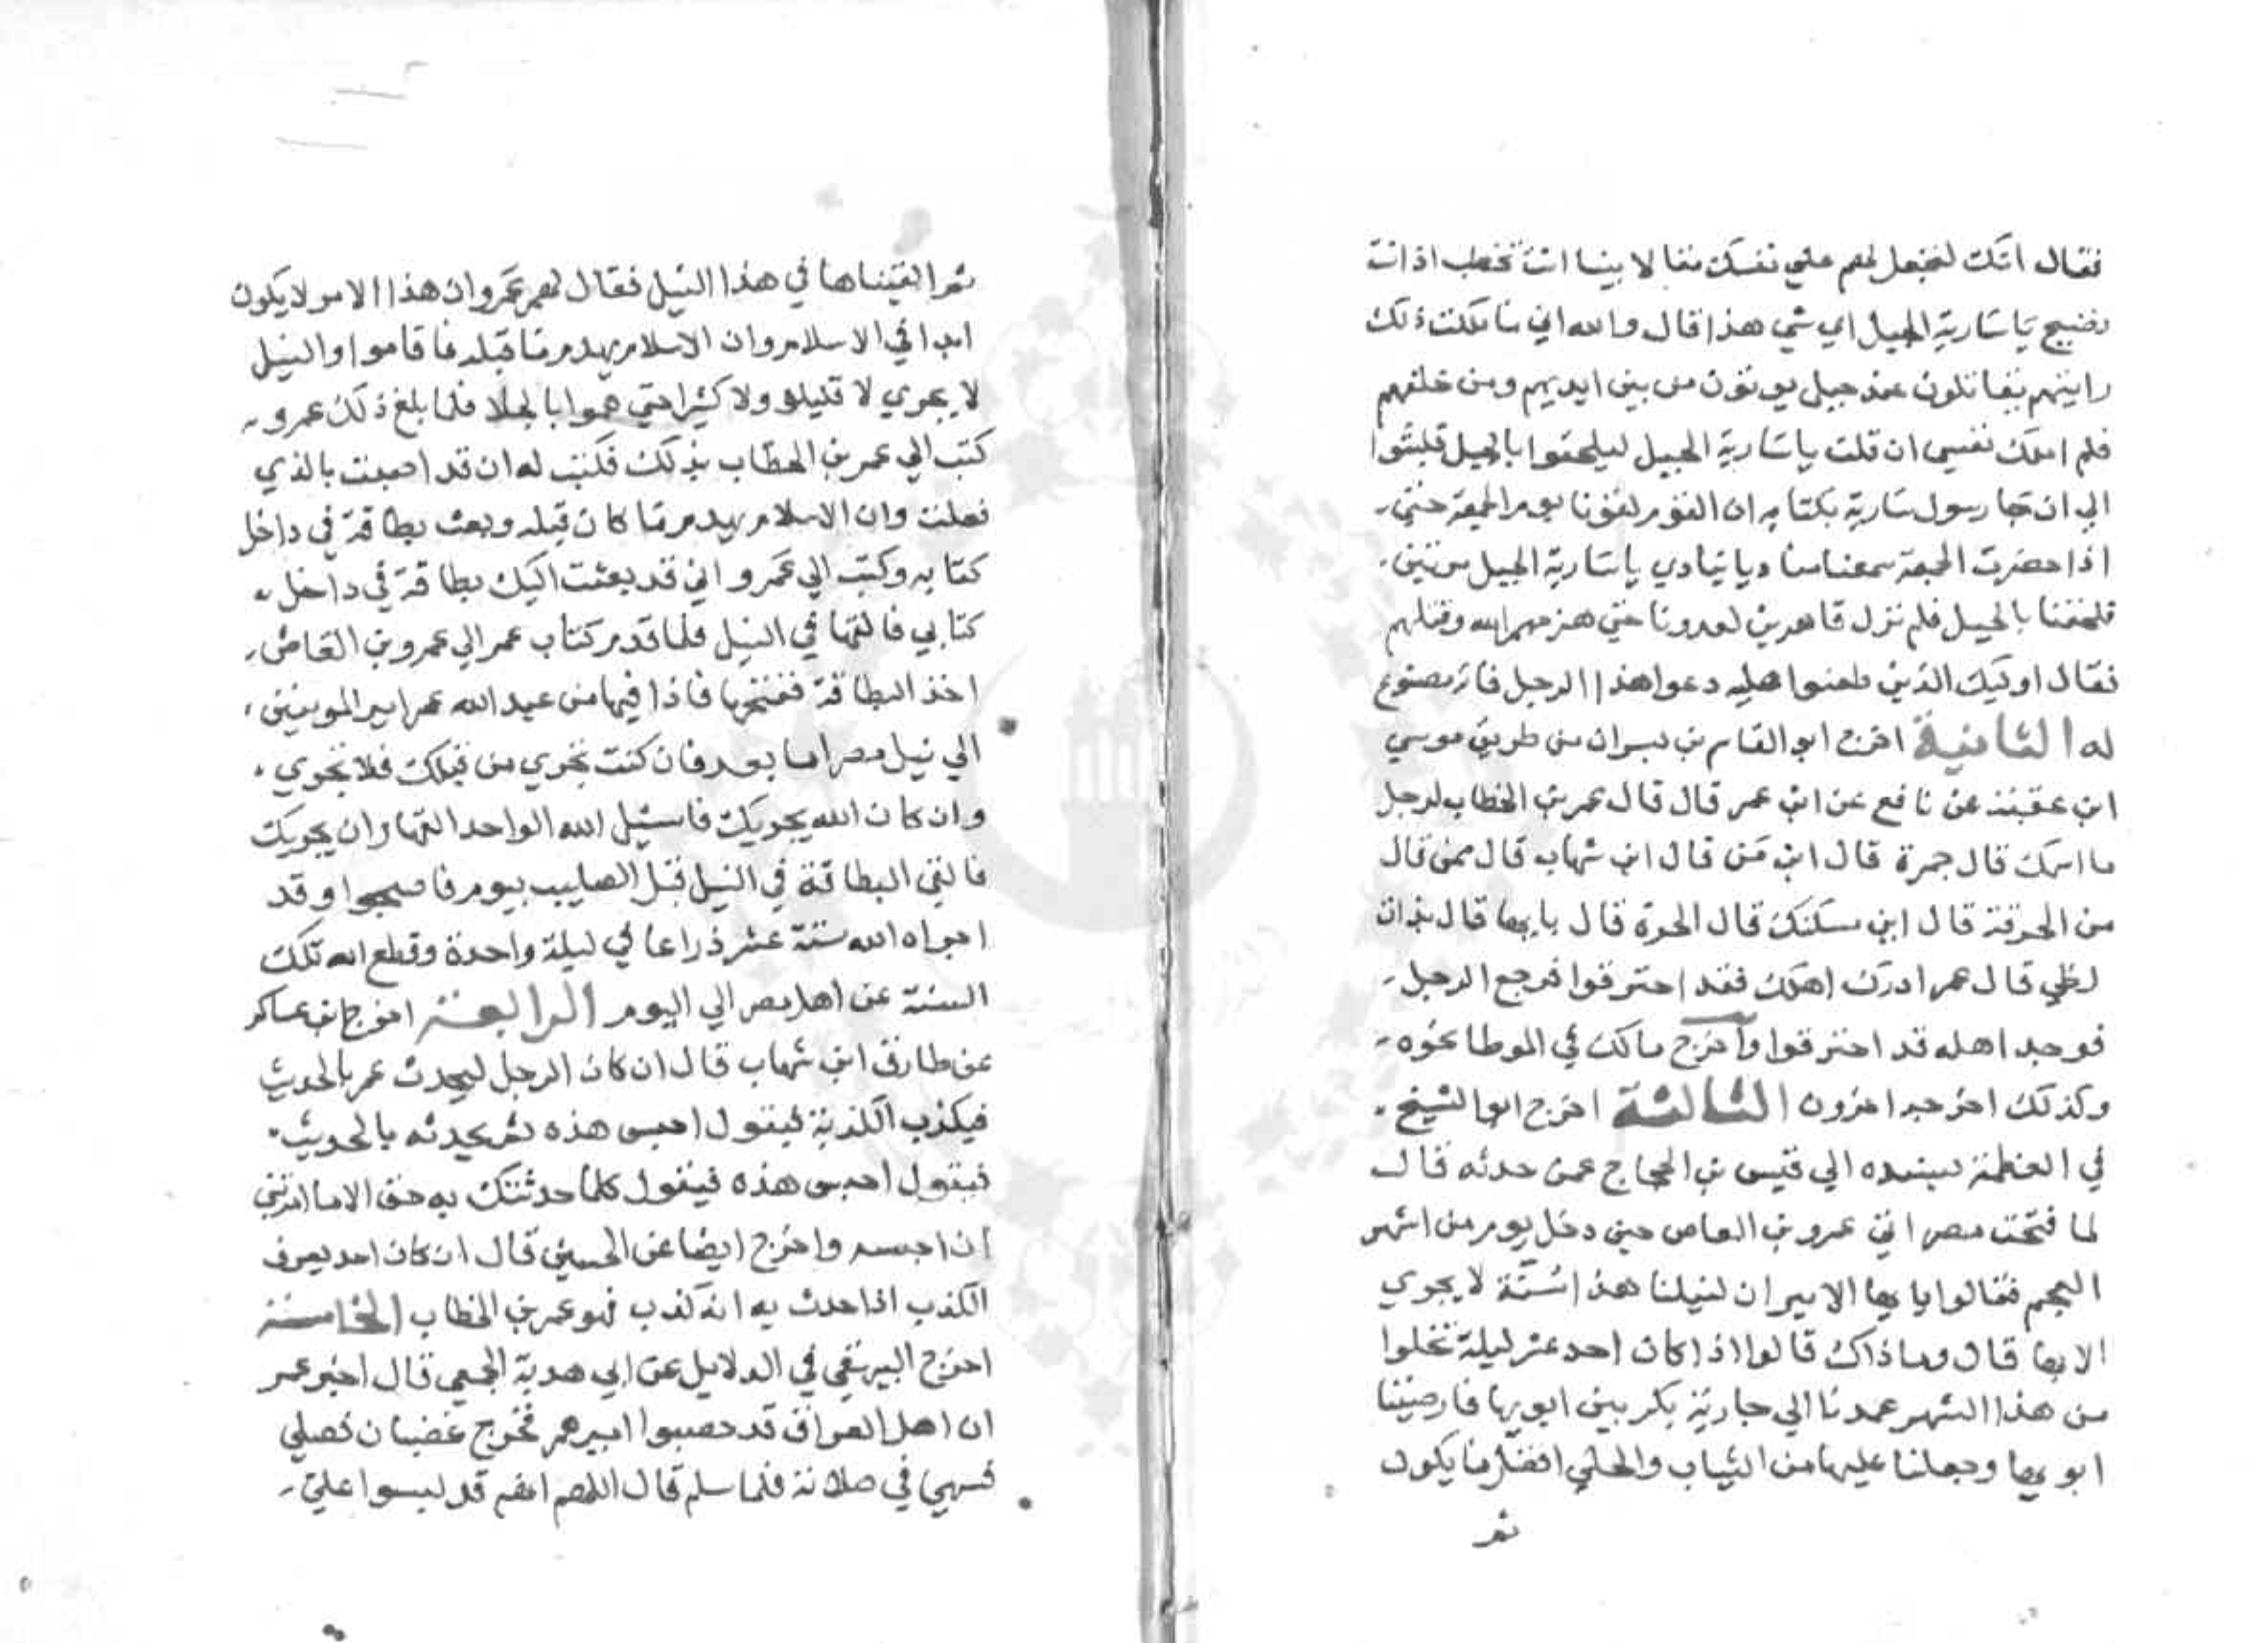 فقال انك لتجعل لهم علي نفسك مقالا بينا انت تخطب اذ انت
تضيح يا سارية الجبل اي شي هذا قال والله اني ما ملكت ذلك
رايتهم يقاتلون عند جبل يوتون من بين ايديهم ومن خلفهم
فلم املك نفسي ان قلت يا سارية الجبل ليلحقوا بالجبل فلبثوا
الي ان جا رسول سارية بكتابه ان القوم لقونا يوم الجمعة حتي
اذا حضرت الجمعة سمعنا مناديا ينادي يا سارية الجبل مرتين
فلحقنا بالجبل فلم نزل قاهرين لعدونا حتي هزمهم الله وقتلهم
فقال اوليك الذين طعنوا عليه دعوا هذا الرجل فانه مصنوع
له الثانية اخرج ابو القاسم بن بسران من طريق موسي
ابن عقبة عن نافع عن ابن عمر قال قال عمر بن الخطاب لرجل
ما اسمك قال جمرة قال ابن من قال ابن شهاب قال ممن قال
من الحرقة قال اين مسكنك قال الحرة قال بايها قال بذات
لظي قال عمر ادرك اهلك فقد احترقوا فرجع الرجل
فوجد اهله قد احترقوا واخرج مالك في الموطا نحوه
وكذلك اخرجه اخرون الثالثة اخرج ابو الشيخ
في العظمة بسنده الي قيس بن الحجاج عمن حدثه قال
لما فتحت مصر اتي عمرو بن العاص حين دخل يوم من اشهر
العجم فقالوا يا ايها الامير ان لنيلنا هذا سنة لا يجري
الا بها قال وما ذاك قالوا اذا كان احد عشر ليلة تخلوا
من هذا الشهر عمدنا الي جارية بكر بين ابويها فارضينا
ابويها وجعلنا عليها من الثياب والحلي افضل ما يكون
ثم
ثم القيناها في هذا النيل فقال لهم عمرو ان هذا الامر لا يكون
ابدا في الاسلام وان الاسلام يهدم ما قبله فاقاموا والنيل
لا يجري لا قليلا ولا كثيرا حتي هموا بالجلا فلما بلغ ذلك عمرو
كتب الي عمر بن الخطاب بذلك فكتب له ان قد اصبت بالذي
فعلت وان الاسلام يهدم ما كان قبله وبعث بطاقة في داخل
كتابه وكتب الي عمرو اني قد بعثت اليك بطاقة في داخل
كتابي فالقها في النيل فلما قدم كتاب عمر الي عمرو بن العاص
اخذ البطاقة ففتحها فاذا فيها من عبد الله عمر امير المومنين
الي نيل مصر اما بعد فان كنت تجري من قبلك فلا تجري
وان كان الله يجريك فاسئل الله الواحد القهار ان يجريك
فالقي البطاقة في النيل قبل الصليب بيوم فاصبحوا وقد
اجراه الله ستة عشر ذراعا في ليلة واحدة وقطع الله تلك
السنة عن اهل مصر الي اليوم الرابعة اخرج ابن عساكر
عن طارق ابن شهاب قال ان كان الرجل ليحدث عمر بالحديث
فيكذب الكذبة فيقول احبس هذه ثم يحدثه بالحديث
فيقول احبس هذه فيقول كلما حدثتك به حق الا ما امرتني
ان احبسه واخرج ايضا عن الحسين قال ان كان احد يعرف
الكذب اذا حدث به انه كذب فهو عمر بن الخطاب الخامسة
اخرج البيهقي في الدلايل عن ابي هدبة الجمعي قال اخبر عمر
ان اهل العراق قد حصبوا اميرهم فخرج غضبان فصلي
فسهي في صلاته فلما سلم قال اللهم انهم قد لبسوا علي